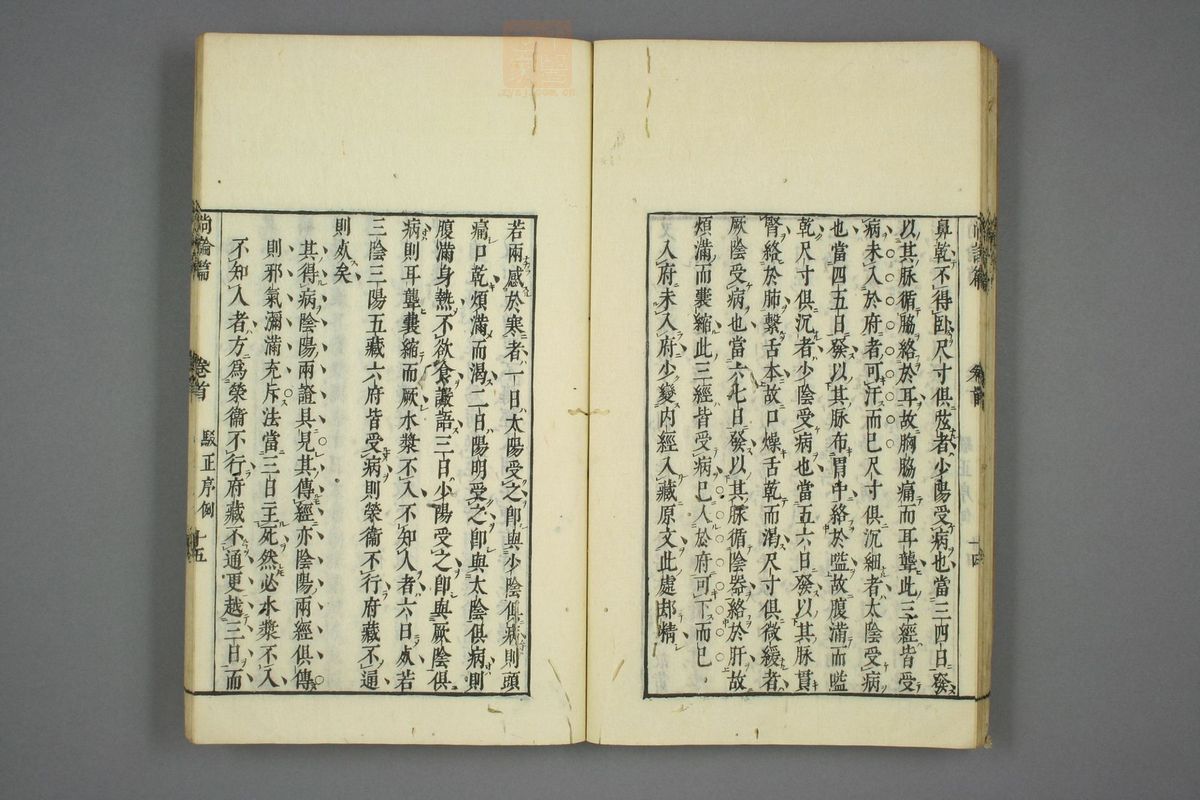 鼻乾不得卧尺寸俱弦者少陽受病也當三四日發
以其脉循脇絡於耳故胸脇痛而耳聾此三經皆受
病未入於府者可汗而已尺寸俱沉細者太陰受病
也當四五日發以其脉布胃中絡於嗌故腹滿而嗌
乾尺寸俱沉者少陰受病也當五六日發以其脉貫
腎絡於肺繫舌本故口燥舌乾而渴尺寸俱微緩者
厥陰受病也當六七日發以其脉循陰器絡於肝故
煩滿而囊縮此三經皆受病已入於府可下而已
入府未入府少變内經入藏原文此處却精
十四
若兩感於寒者一日太陽受之即與少陰俱病則頭
痛口乾煩滿而渴二日陽明受之即與太陰俱病則
腹滿身熱不欲食讝語三日少陽受之即與厥陰俱
病則耳聾囊縮而厥水漿不入不知人者六日死若
三陰三陽五藏六府皆受病則榮衞不行府藏不通
則死矣
其得病陰陽兩證具見其傳經亦陰陽兩經俱傳
則邪氣瀰滿充斥法當三日主死然必水漿不入
不知人者方爲榮衞不行府藏不通更越三日而
尚論篇 卷首 駁正序例 十五
zysj.com.cn